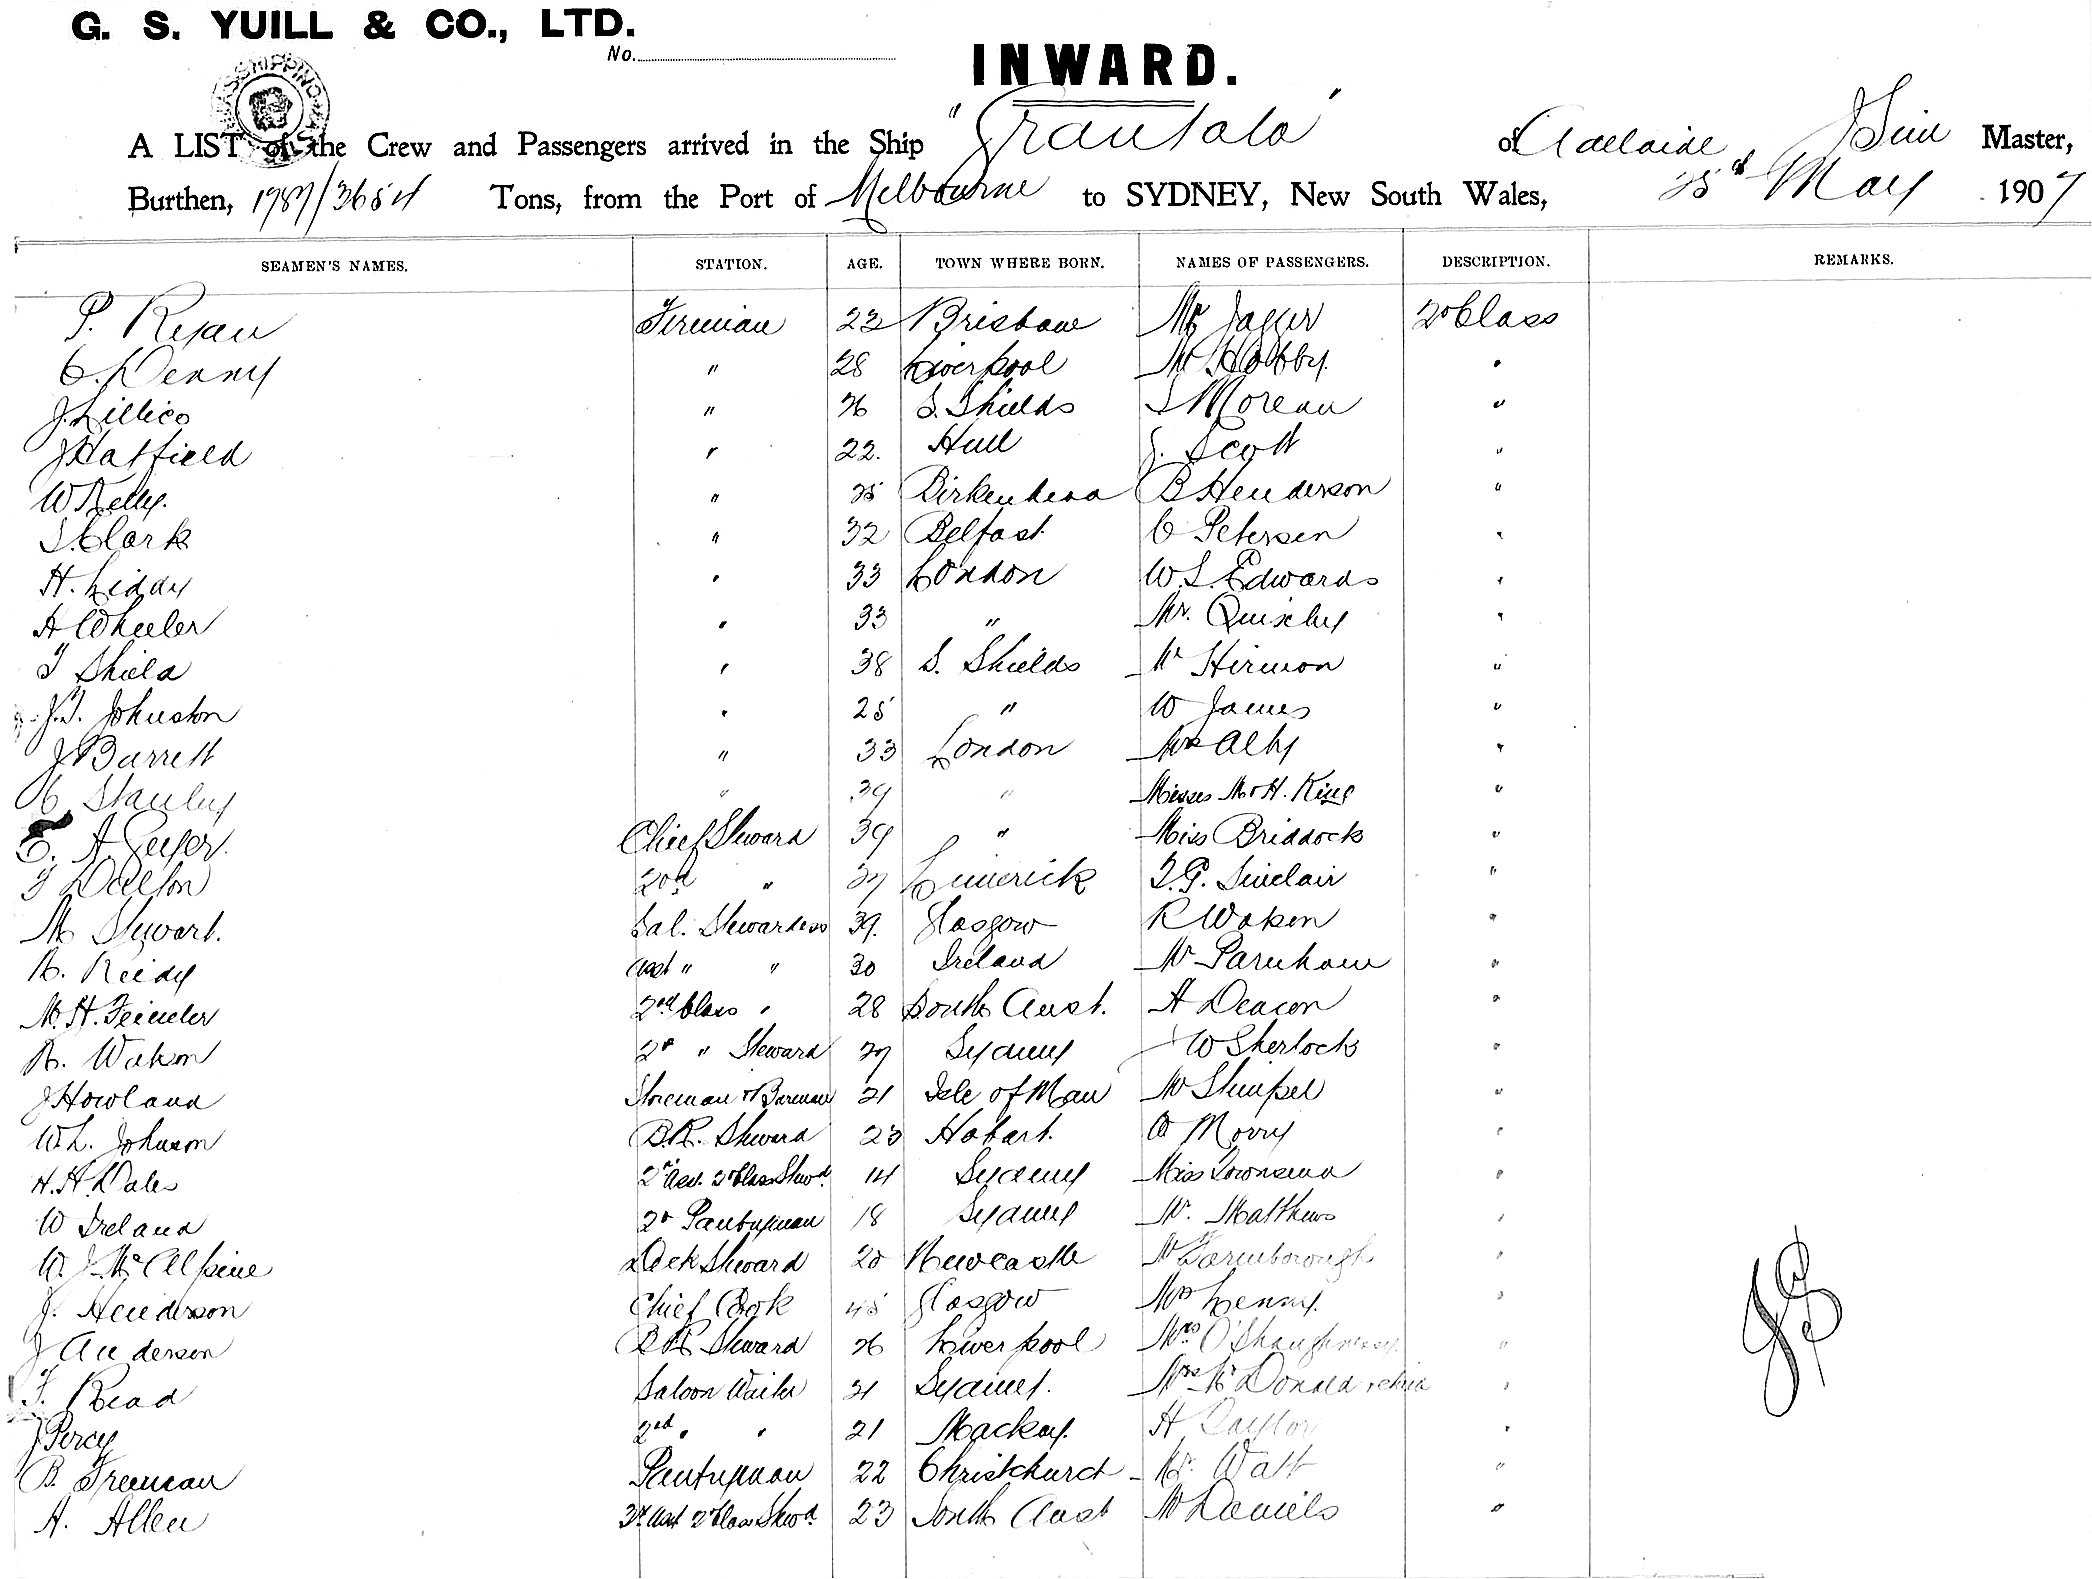 G. S. YUILL & CO., LTD.
No.
INWARD.
A LIST of the Crew and Passengers arrived in the Ship "Grantala" of Adelaide J Sim Master,
Burthen, 1787/3654 Tons, from the Port of Melbourne to SYDNEY, New South Wales, 25th May 1907
SEAMEN'S NAMES. STATION. AGE. TOWN WHERE BORN. NAMES OF PASSENGERS. DESCRIPTION. REMARKS.
P. Ryan Fireman 22 Brisbane Mr Jagger 2d Class
C. Denny " 28 Liverpool Mr Hobby "
J. Lillico " 26 S. Shields S Moreau "
J Hatfield " 22. Hull J. Scott "
W Kelly. " 25 Birkenhead B Henderson "
S. Clark " 32 Belfast C Petersen "
H. Liddy " 33 London W. S. Edwards "
A Wheeler " 33 " Mr. "
T Shield " 38 S. Shields Mr Hirmon "
J. T. Johnston " 25 " W James "
J Barrett " 33 London Alby "
Stanley " 39 " Misses M & H. King "
E. A. Geyer. Chief Steward 39 " Miss Briddock "
T Dalton 2nd " 37 Limerick T. G. Sinclair "
M Stewart. Sal. Stewardess 39. Glasgow R Waken "
N. Reidy Asst " " 30 Ireland Mr Parnham "
M. H. 2nd Class " 28 South Aust. A Deacon "
R. Waken 2d " Steward 37 Sydney W Sherlock "
J Howland Storeman & Barman 21 Isle of Man Mr "
W. L. Johnson B.R. Steward 23 Hobart. "
H. H. Dales 2d Asst. 2d Class Stewd. 14 Sydney Miss Townsend "
W Ireland 2d Pantryman 18 Sydney Mr. Matthews "
W. J. McAlpine Deck Steward 20 Newcastle Mr Farnborough "
J. Henderson Chief Cook 45 Glasgow Mrs Lenny. "
J Anderson B R Steward 26 Liverpool Mrs O'Shaughnessy "
F. Read Saloon Waiter 21 Sydney. Mrs McDonald & child "
J Percy 2nd " " 21 Mackay. H Taylor "
B. Freeman Pantryman 22 Christchurch Mr. Watt "
A. Allen 3d Asst 2d Class Stewd. 23 South Aust Mr Daniels "